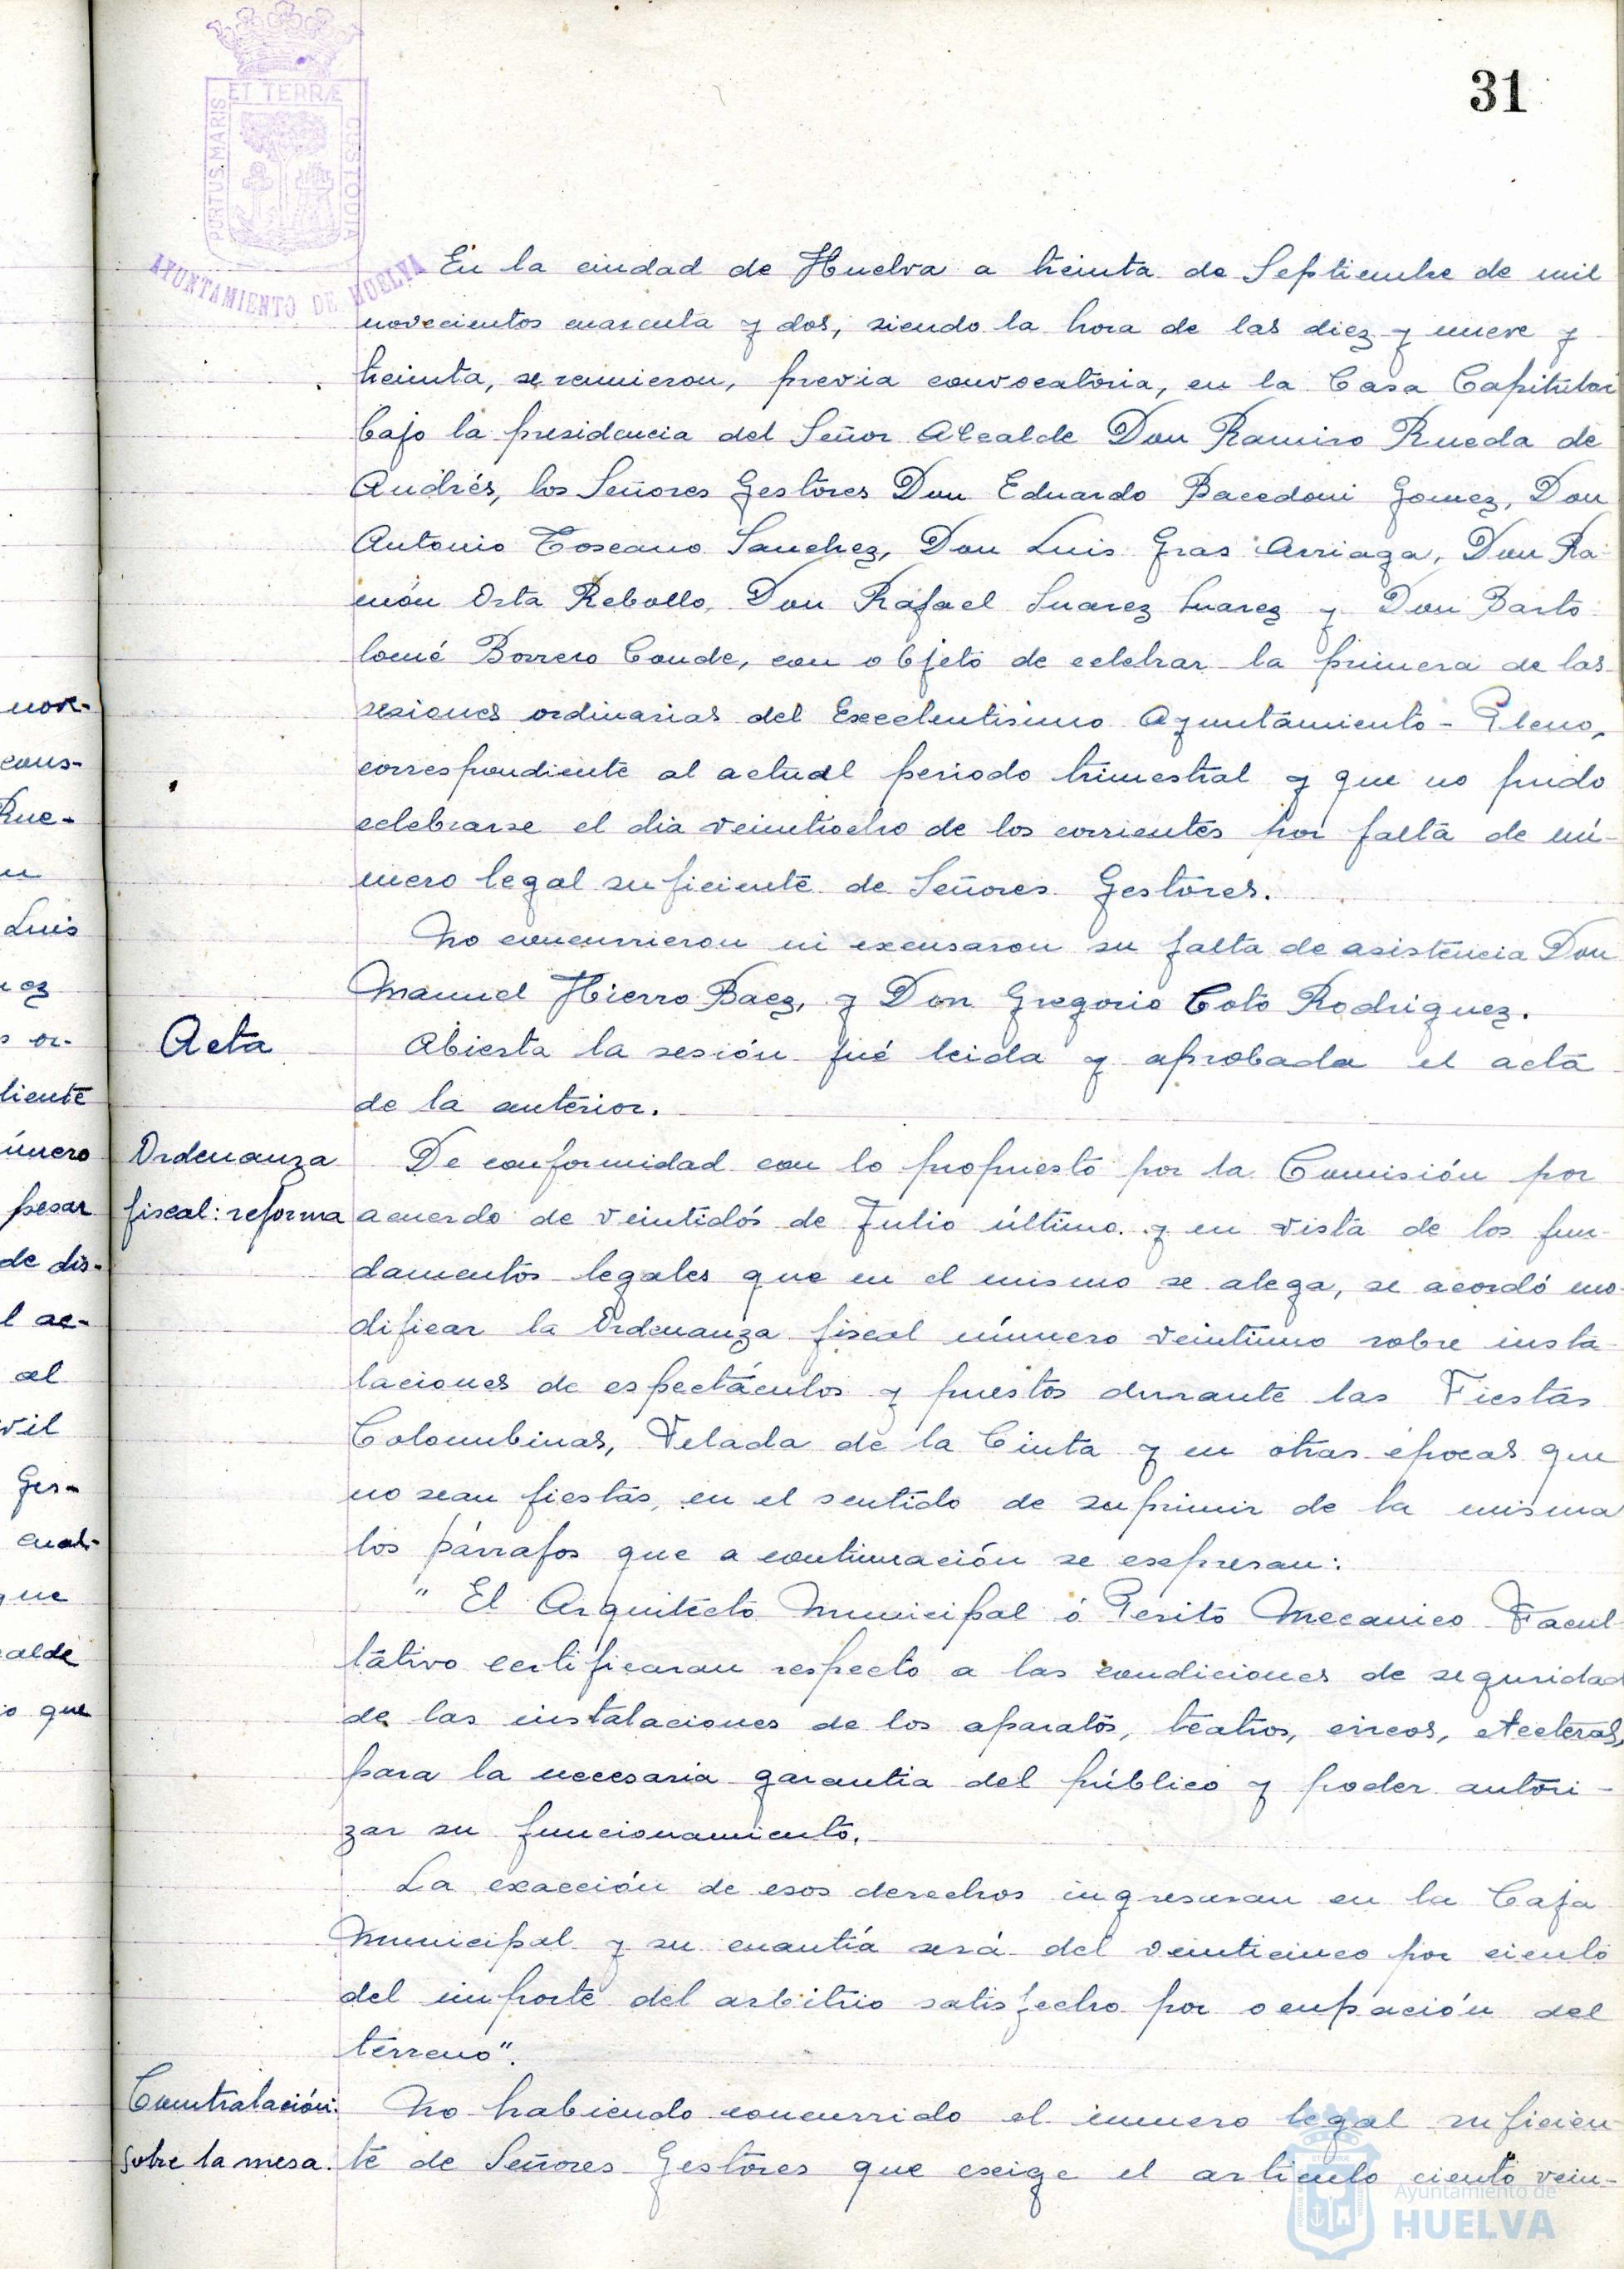 31
ET TERRÆ
PORTUS MARIS
CUSTODIA
AYUNTAMIENTO DE HUELVA
En la ciudad de Huelva a treinta de Septiembre de mil
novecientos cuarenta y dos, siendo la hora de las diez y nueve y
treinta, se reunieron, previa convocatoria, en la Casa Capitular
bajo la presidencia del Señor Alcalde Don Ramiro Rueda de
Andrés, los Señores Gestores Don Eduardo Bacedoni Gomez, Don
Antonio Toscano Sanchez, Don Luis Gras Arriaga, Don Ra-
món Orta Rebollo, Don Rafael Suarez Suarez y Don Barto-
lomé Borrero Conde, con objeto de celebrar la primera de las
sesiones ordinarias del Excelentisimo Ayuntamiento-Pleno,
correspondiente al actual periodo trimestral y que no pudo
celebrarse el dia veintiocho de los corrientes por falta de nú-
mero legal suficiente de Señores Gestores.
No concurrieron ni excusaron su falta de asistencia Don
Manuel Hierro Baez, y Don Gregorio Coto Rodriguez.
Acta
Abierta la sesión fué leida y aprobada el acta
de la anterior.
Ordenanza
fiscal: reforma
De conformidad con lo propuesto por la Comisión por
acuerdo de veintidós de Julio último y en vista de los fun-
damentos legales que en el mismo se alega, se acordó mo-
dificar la Ordenanza fiscal número veintiuno sobre insta-
laciones de espectáculos y puestos durante las Fiestas
Colombinas, Velada de la Cinta y en otras épocas que
no sean fiestas, en el sentido de suprimir de la misma
los párrafos que a continuación se expresan:
" El Arquitecto Municipal ó Perito Mecanico Facul-
tativo certificaran respecto a las condiciones de seguridad
de las instalaciones de los aparatos, teatros, circos, etceteras,
para la necesaria garantia del público y poder autori-
zar su funcionamiento.
La exacción de esos derechos ingresaran en la Caja
Municipal y su cuantía será del veinticinco por ciento
del importe del arbitrio satisfecho por ocupación del
terreno".
Contratación:
sobre la mesa.
No habiendo concurrido el numero legal suficien-
te de Señores Gestores que exige el articulo ciento vein-
nove-
cons-
Rue-
n
Luis
rez
s or-
diente
úmero
pesar
de dis-
l ac-
al
vil
Ges-
cual-
que
calde
o que
Ayuntamiento de
HUELVA